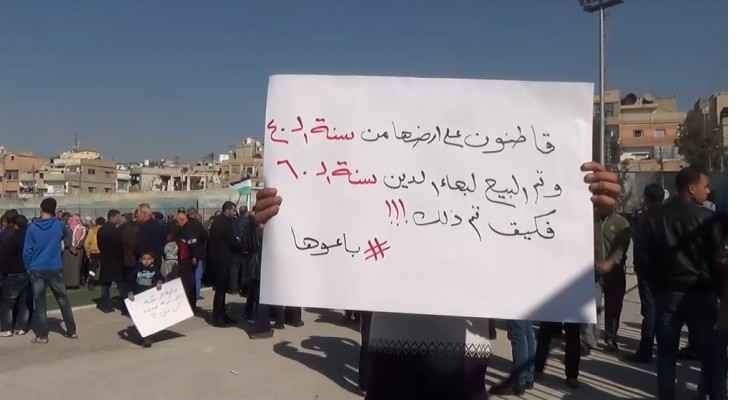 قاطنون على ارضها من سنة الـ ٤٠
وتم البيع لبهاء الدين سنة الـ ٦٠
فكيف تم ذلك !!!
#باعوها